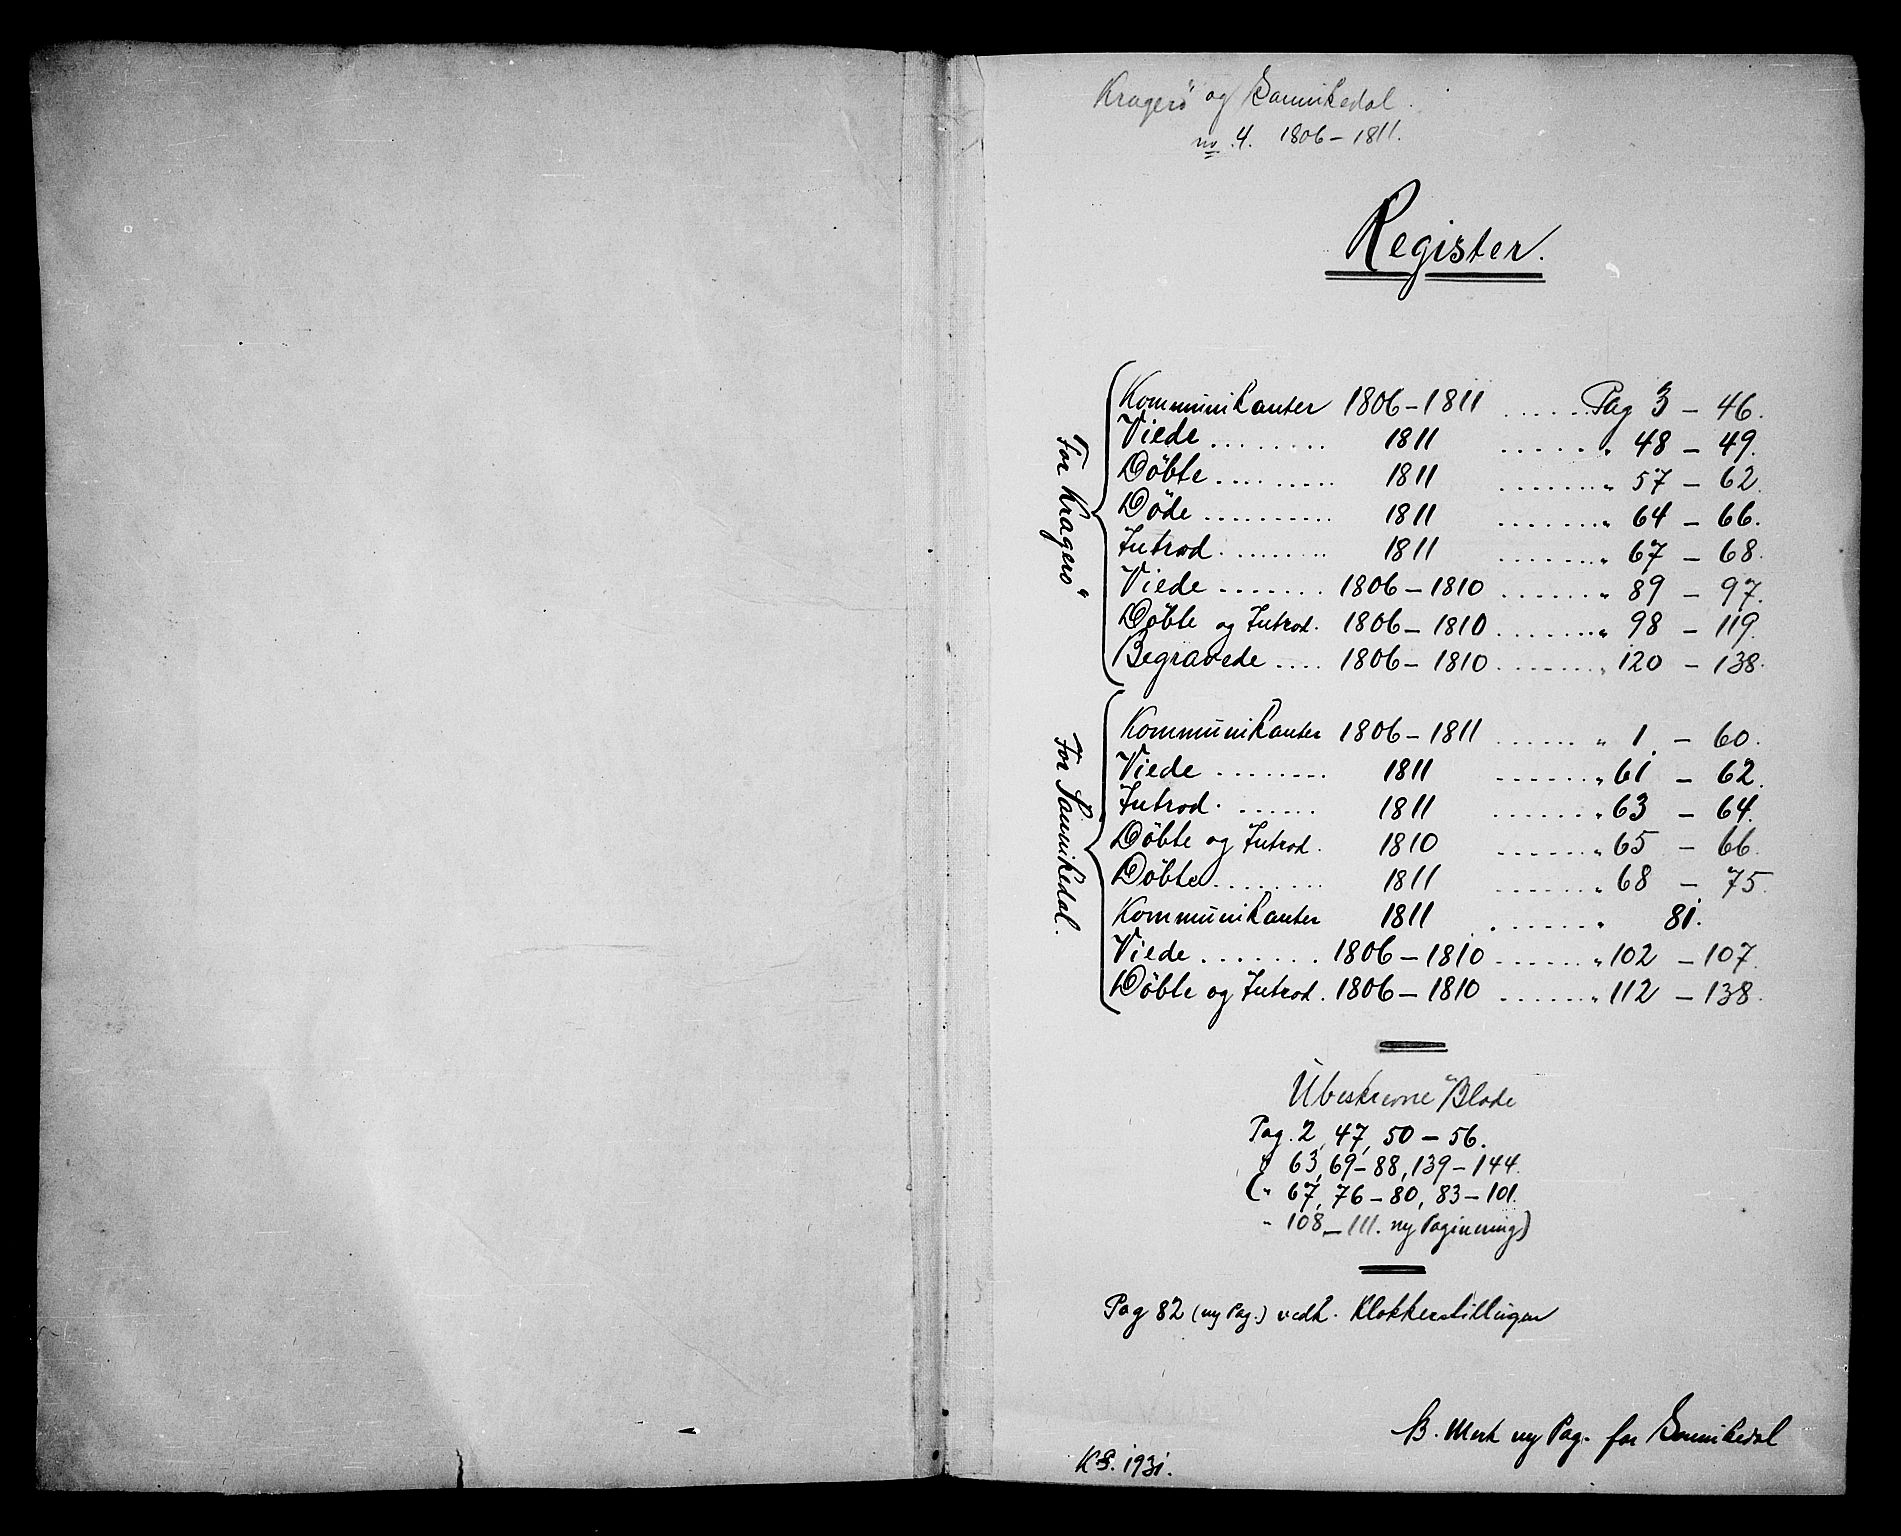 Kragerö og Sannikedal.
no. 4. 1806 – 1811.
Register.
For Kragerö
Kommunikanter 1806 – 1811 ...... Pag 3 – 46.
Viede ........ 1811 ....... " 48 – 49.
Döbte ......... 1811 ....... " 57 – 62.
Döde .......... 1811 ....... " 64 – 66.
Introd. ........ 1811 ....... " 67 – 68.
Viede ....... 1806 – 1810 ....... " 89 – 97.
Döbte og Introd. 1806 – 1810 ....... " 98 – 119.
Begravede .... 1806 – 1810 ....... " 120 – 138.
For Sannikedal.
Kommunikanter 1806 – 1811 ...... " 1. – 60.
Viede ........ 1811 ....... " 61 – 62.
Introd. ...... 1811 ....... " 63 – 64.
Döbte og Introd. 1810 ....... " 65 – 66.
Döbte ........ 1811 ....... " 68 – 75.
Kommunikanter 1811 ....... " 81.
Viede ....... 1806 – 1810 ...... " 102 – 107.
Döbte og Introd. 1806 – 1810 ...... " 112 – 138.
Ubeskrevne Blade
Pag. 2, 47, 50 – 56.
" 63, 69 – 88, 139 – 144.
(" 67, 76 – 80, 83 – 101.
" 108 – 111. ny Paginering)
Pag 82 (ny Pag.) vedk. Klokkerstillingen
B. Merk ny Pag. for Sannikedal
K.S. 1931.